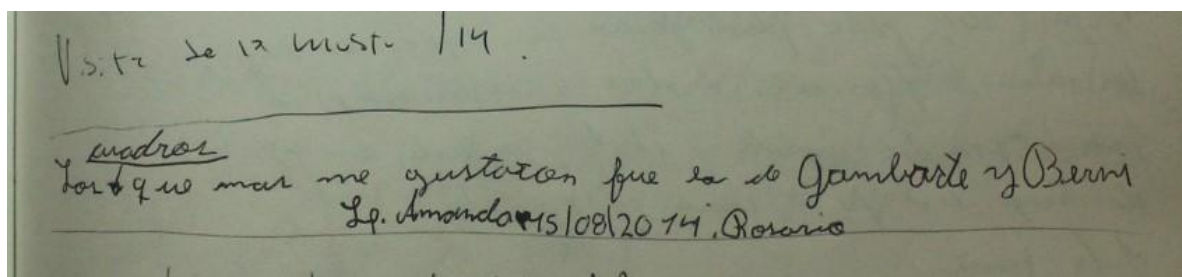 Visita de la muestra /14.
cuadros
Los que mas me gustaron fue la de Gambarte y Berni
Amanda 15/08/2014. Rosario